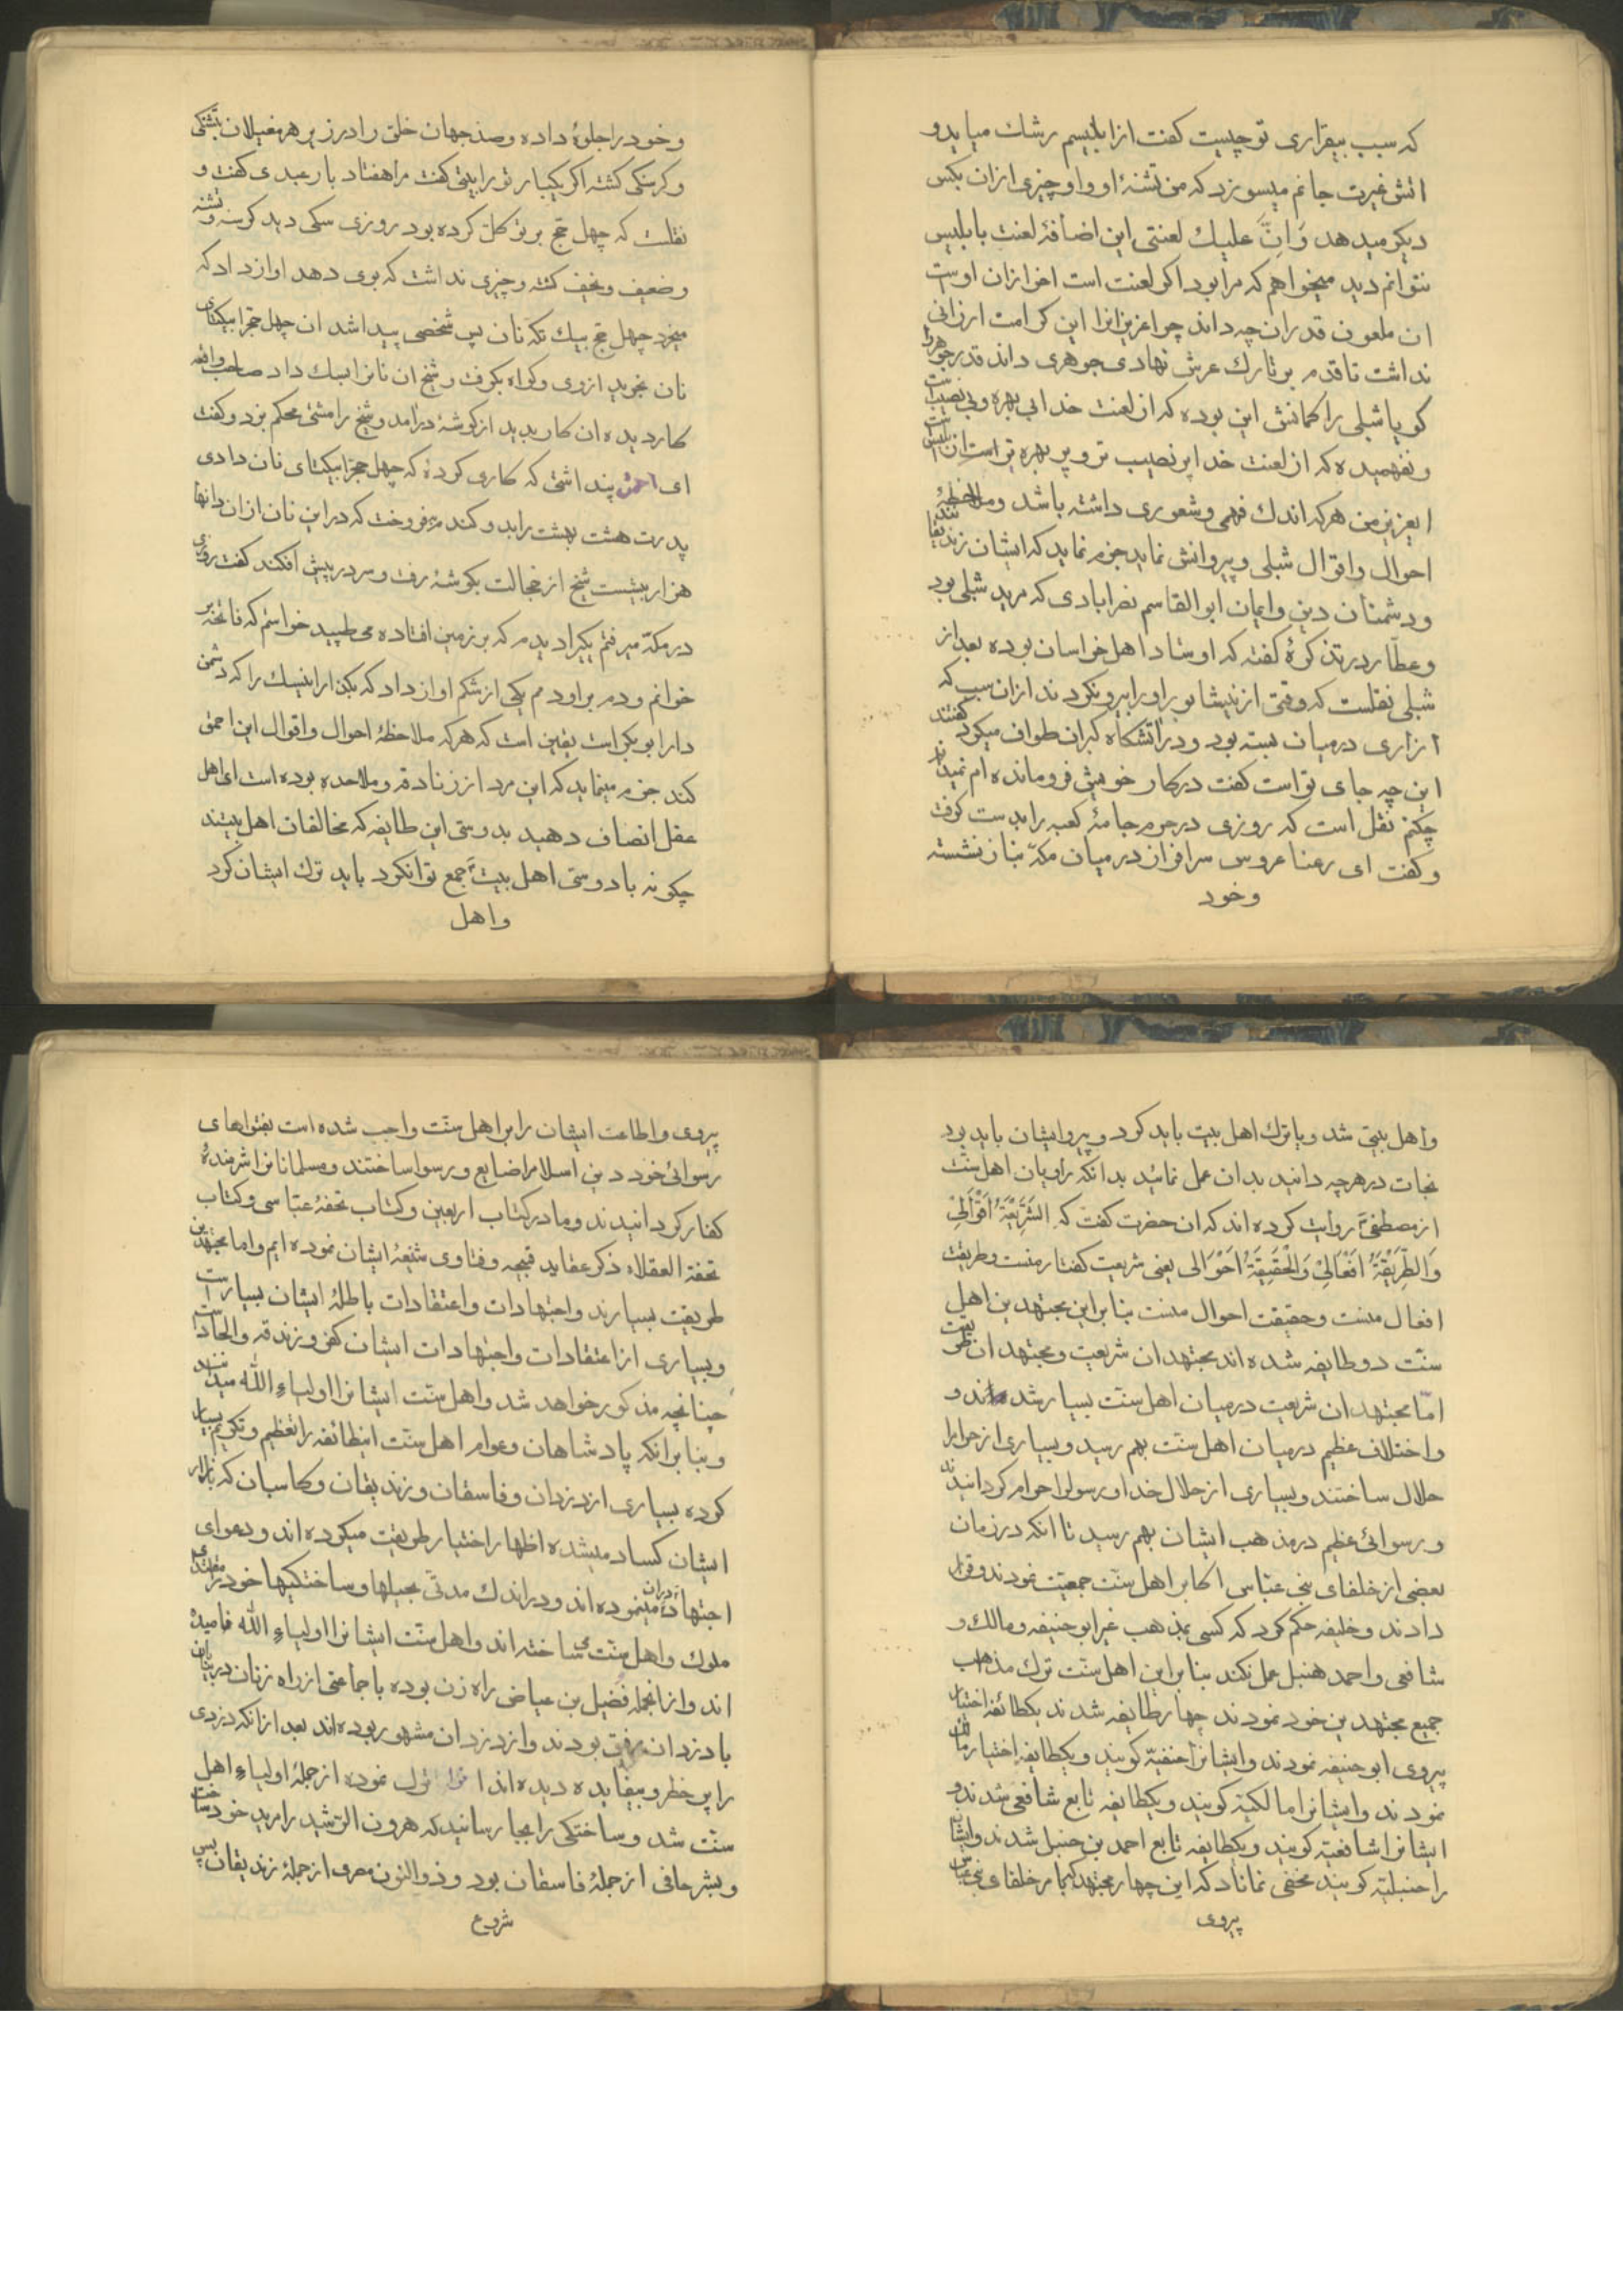 که سبب بیقراری تو چیست کفت از ابلیسم رشک میاید و
اتش غیرت جانم میسوزد که من تشنهٔ او و او چیزی ازان بکس
دیکر میدهد وَاِنَّ علیک لعنتی این اضافهٔ لعنت بابلیس
نتوانم دید میخواهم که مرا بود اکر لعنت است اخر ازان اوست
ان ملعون قدر ان چه داند چرا عزیزانرا این کرامت ارزانی
نداشت تا قدم بر تارک عرش نهادی جوهری داند قدر جوهر
کویا شبلی را کمانش این بوده که از لعنت خدا بی بهره و بی نصیب است
و نفهمیده که از لعنت خدا پر نصیب تر و پر بهره تر است از ابلیس
ایعزیز من هرکه اندک فهمی و شعوری داشته باشد و ملاحظهٔ
احوال و اقوال شبلی و پیروانش نماید جزم نماید که ایشان زندیقانند
و دشمنان دین و ایمان ابو القاسم نصرابادی که مرید شبلی بود
و عطّار در تذکرهٔ کفته که اوستاد اهل خراسان بوده بعد از
شبلی نقلست که وقتی از نیشابور او را بیرون کردند ازان سبب که
ازاری درمیان بسته بود و در اتشکاه کبران طواف میکود کفتند
این چه جای تو است کفت در کار خویش فرومانده ام نمیدانم
چکنم نقل است که روزی در حرم جامهٔ کعبه را بدست کوفت
و کفت ای رعنا عروس سرافراز درمیان مکّه بناز نشسته
وخود
و خود را جلوهٔ داده و صد جهان خلق را در زیر هر مغیلان بتشنکی
و کرسنکی کشته اکر یکبار تو را بیتی کفت مرا هفتاد بار عبدی کفت و
نقلست که چهل حج بر توکل کرده بود روزی سکی دید کرسنه و تشنه
و ضعیف و نحیف کشته و چیزی نداشت که بوی دهد اواز داد که
میخرد چهل حج بیک تکّه نان پس شخصی پیدا شد ان چهل حجرا بیکتای
نان بخرید از وی و کواه بکرفت و شیخ ان نانرا بسک داد صاحب واقعه
کاردیده ان کار بدید از کوشهٔ درامد و شیخ را مشتی محکم بزد و کفت
ای احمق پنداشتی که کاری کردهٔ که چهل حجرا بیکتای نان دادی
پدرت هشت بهشت را بدو کندم بفروخت که در این نان ازان دانها
هزار بیشست شیخ از خجالت بکوشهٔ رفت و سر در پیش افکند کفت روزی
در مکّه میرفتم یکیرا دیدم که بر زمین افتاده می طپید خواستم که فاتحه بر
خوانم و دم بر او دمم یکی از شکم اواز داد که بکذار این سک را که دشمن
دار ابوبکر است یقین است که هرکه ملاحظهٔ احوال و اقوال این احمق
کند جزم مینماید که این مرد از زنادقه و ملاحده بوده است ای اهل
عقل انصاف دهید بدوستی این طایفه که مخالفان اهل بیتند
چکونه با دوستی اهل بیت جمع توانکرد باید ترک ایشان کرد
واهل
واهل بیتی شد و یا ترک اهل بیت باید کرد و پیرو ایشان باید بود
نجات در هرچه دانید بدان عمل نمائید بدانکه راویان اهل سنّت
از مصطفیٰ روایت کرده اند که ان حضرت کفت که الشَّرِیْعَةُ اَقْوَالِیْ
وَالطَّرِیْقَةُ اَفْعَالِیْ وَالْحَقِیْقَةُ اَحْوَالی یعنی شریعت کفتار منست و طریقت
افعال منست و حقیقت احوال منست بنابراین مجتهدین اهل
سنّت دو طایفه شده اند مجتهدان شریعت و مجتهدان طریقت
امّا مجتهدان شریعت درمیان اهل سنّت بسیار شده اند و
واختلاف عظیم درمیان اهل سنّت بهم رسید و بسیاری از حرامرا
حلال ساختند و بسیاری از حلال خدا و رسولرا حرام کردانیدند
و رسوائی عظیم در مذهب ایشان بهم رسید تا انکه در زمان
بعضی از خلفای بنی عبّاس اکابر اهل سنّت جمعیّت نمودند و قرار
دادند و خلیفه حکم کرد که کسی بمذهب غیر ابو حنیفه و مالک و
شافعی و احمد حنبل عمل نکند بنابراین اهل سنّت ترک مذهب
جمیع مجتهدین خود نمودند چهار طایفه شدند یکطائفه اختیار
پیروی ابو حنیفه نمودند و ایشانرا حنفیّه کویند و یکطایفه اختیار مالک
نمودند و ایشانرا مالکیّه کویند و یکطایفه تابع شافعی شدند و
ایشانرا شافعیّه کویند و یکطایفه تابع احمد بن حنبل شدند و ایشان
را حنبلیّه کویند مخفی نماناد که این چهار مجتهد کبار خلفای بنی عباس
پیروی
پیروی و اطاعت ایشان را بر اهل سنّت واجب شده است بفتواهای
رسوائی خود دین اسلامرا ضایع و رسوا ساختند و مسلمانانرا شرمندهٔ
کفار کردانیدند و ما در کتاب اربعین و کتاب تحفهٔ عبّاسی و کتاب
تحفة العقلاء ذکر عقاید قبیحه و فتاوی شنیعهٔ ایشان نموده ایم و اما مجتهدین
طریقت بسیارند و اجتهادات و اعتقادات باطلهٔ ایشان بسیار است
و بسیاری از اعتقادات و اجتهادات ایشان کفر و زندقه و الحاد است
چنانچه مذکور خواهد شد و اهل سنّت ایشانرا اولیاءِ الله میدانند
و بنابر انکه پادشاهان و عوام اهل سنّت اینطائفه را تعظیم و تکریم بسیار
کرده بسیاری از دزدان و فاسقان و زندیقان و کاسبان که بازار
ایشان کساد میشده اظهار اختیار طریقت میکرده اند و دعوای
اجتهاد دران مینموده اند و در اندک مدتی بحیلها و ساختکیها خود را مقتدای
ملوک و اهل سنّت می ساخته اند و اهل سنّت ایشانرا اولیاءِ الله نامیده
اند و از انجمله فضیل بن عیاض راه زن بوده با جماعتی از راه زنان در بیابان
با دزدان رفیق بودند و از دزدان مشهور بوده اند بعد از انکه دزدی
را پر خطر و بیفایده دیده اند ترک نموده از جملهٔ اولیاءِ اهل
سنّت شد و ساختکی را بجا رسانید که هرون الرّشید را مرید خود ساخت
و بشر حافی از جملهٔ فاسقان بود و ذوالنون مصری از جملهٔ زندیقان
شروع